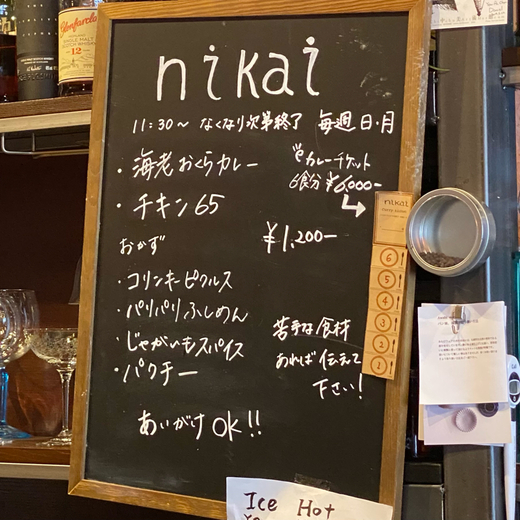 nikai
11:30〜 なくなり次第終了 毎週日・月
・海老おくらカレー
・チキン65
カレーチケット
6食分 ¥6,000-
¥1,200-
おかず
・コリンキーピクルス
・パリパリふしめん
・じゃがいもスパイス
・パクチー
苦手な食材
あれば伝えて
下さい!
あいがけOK!!
nikai
6
5
4
3
2
1
Ice Hot
Glenfarclas
SINGLE MALT
SCOTCH WHISKY
12